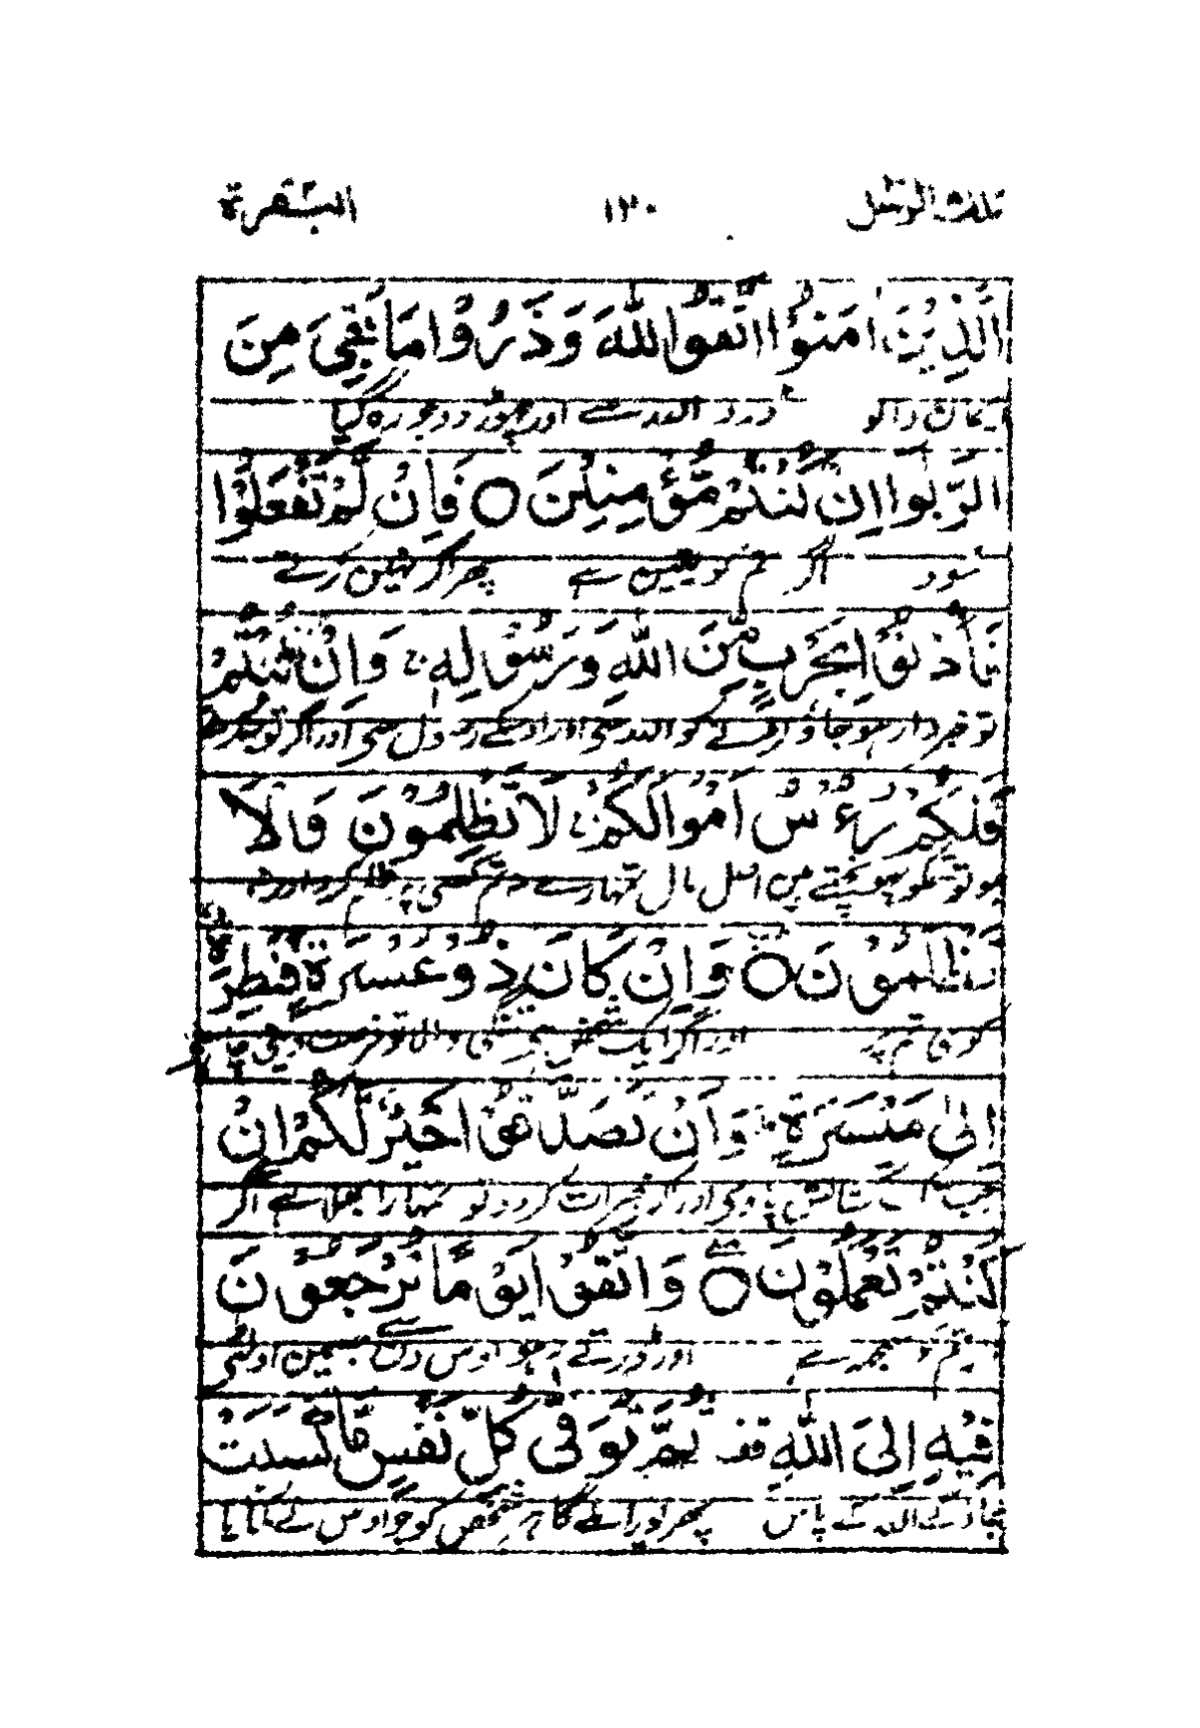 تلك الرسل ١٣٠ البقرة
الَّذِيْنَ اٰمَنُوا اتَّقُوا اللّٰهَ وَذَرُوْا مَا بَقِيَ مِنَ
ایمان والو ڈرو اللہ سے اور چھوڑ دو جو رہ گیا
الرِّبٰوا اِنْ كُنْتُمْ مُّؤْمِنِيْنَ ○ فَاِنْ لَّمْ تَفْعَلُوْا
سود اگر تم کو یقین ہے پھر اگر نہیں کرتے
فَأْذَنُوْا بِحَرْبٍ مِّنَ اللّٰهِ وَرَسُوْلِهٖ ۚ وَاِنْ تُبْتُمْ
تو خبردار ہو جاؤ لڑنے کو اللہ سے اور اوسکے رسول سے اور اگر توبہ کرتے
فَلَكُمْ رُءُوْسُ اَمْوَالِكُمْ ۚ لَا تَظْلِمُوْنَ وَلَا
ہو تو تمکو پہنچتے ہیں اصل مال تمہارے نہ تم کسی پر ظلم کرو اور نہ
تُظْلَمُوْنَ ○ وَاِنْ كَانَ ذُوْ عُسْرَةٍ فَنَظِرَةٌ
کوئی تم پر اور اگر ایک شخص ہے تنگی والا تو فرصت دینی چاہیے
اِلٰى مَيْسَرَةٍ ۭ وَاَنْ تَصَدَّقُوْا خَيْرٌ لَّكُمْ اِنْ
جب تک کشائش پاوے اور اگر خیرات کر دو تو تمہارا بھلا ہے اگر
كُنْتُمْ تَعْلَمُوْنَ ○ وَاتَّقُوْا يَوْمًا تُرْجَعُوْنَ
تم کو سمجھ ہے اور ڈرتے رہو اوس دن سے جسمین اولٹے
فِيْهِ اِلَى اللّٰهِ قف ثُمَّ تُوَفّٰى كُلُّ نَفْسٍ مَّا كَسَبَتْ
جاؤگے اللہ کے پاس پھر پورا ملے گا ہر شخص کو جو اوس نے کمایا